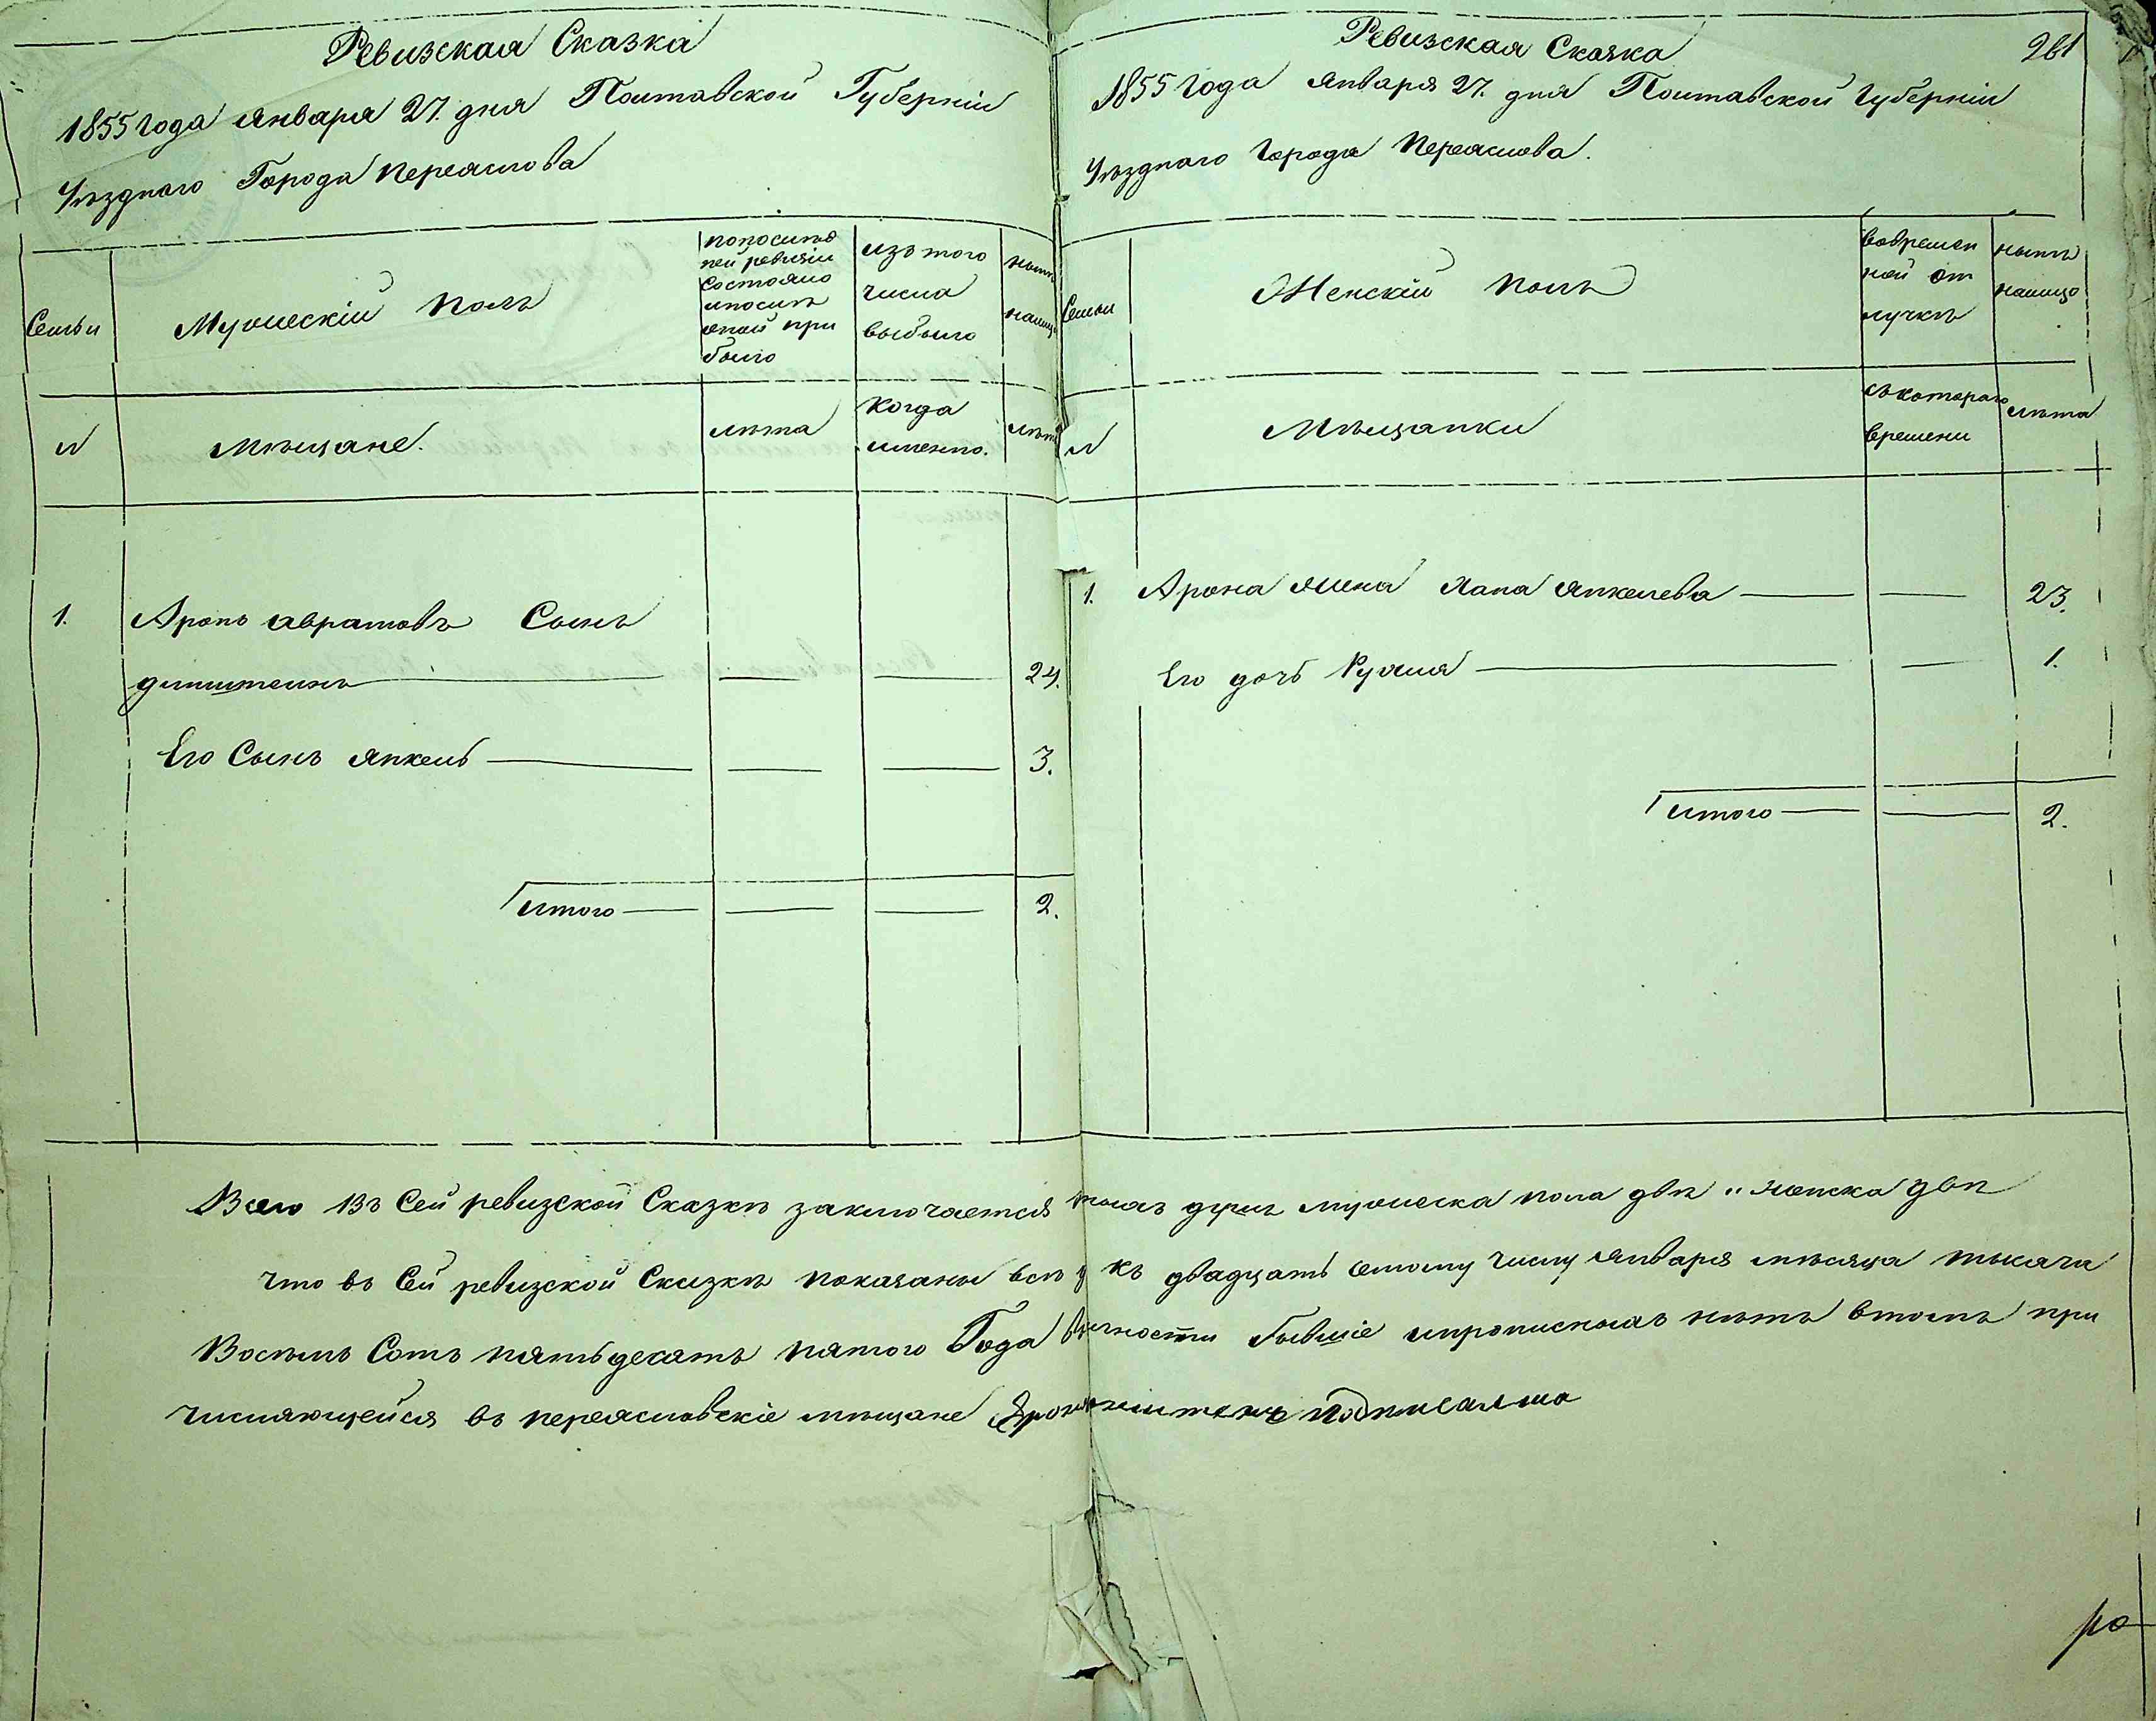 Ревизская Сказка
1855 года января 27. дня Полтавской Губерніи
Уѣзднаго Города Переяслова
Семьи
Мужескій полъ
попослѣд
ней ревизіи
состояло
ипослѣ
оной при
было
изъ того
числа
выбыло
нынѣ
налицо
№
мѣщане.
лѣта
когда
именно.
лѣта
1. Аронъ аврамовъ Сынъ
24.
Его Сынъ янкель 3.
итого 2.
Ревизская Сказка
261
1855 года января 27. дня Полтавской губерніи
Уѣзднаго города Переяслова.
Семьи
Женскій полъ
вовремен
ной от
лучкѣ
нынѣ
налицо
№
Мѣщанки
съкотораго
времени
лѣта
1. Арона жена Хана янкелева 23.
Его дочь Рухля 1.
итого 2.
Всего Въ Сей ревизской Сказкѣ заключается душъ мужеска пола двѣ " женска двѣ
что въ Сей ревизской Сказкѣ показаны всѣ къ двадцать семому числу января мѣсяца тысяча
Восѣмъ Сотъ пятьдесятъ пятого Года бывшіе ипрописныхъ нѣтъ втомъ при
числяющейся въ переясловскіе мѣщане подписалша